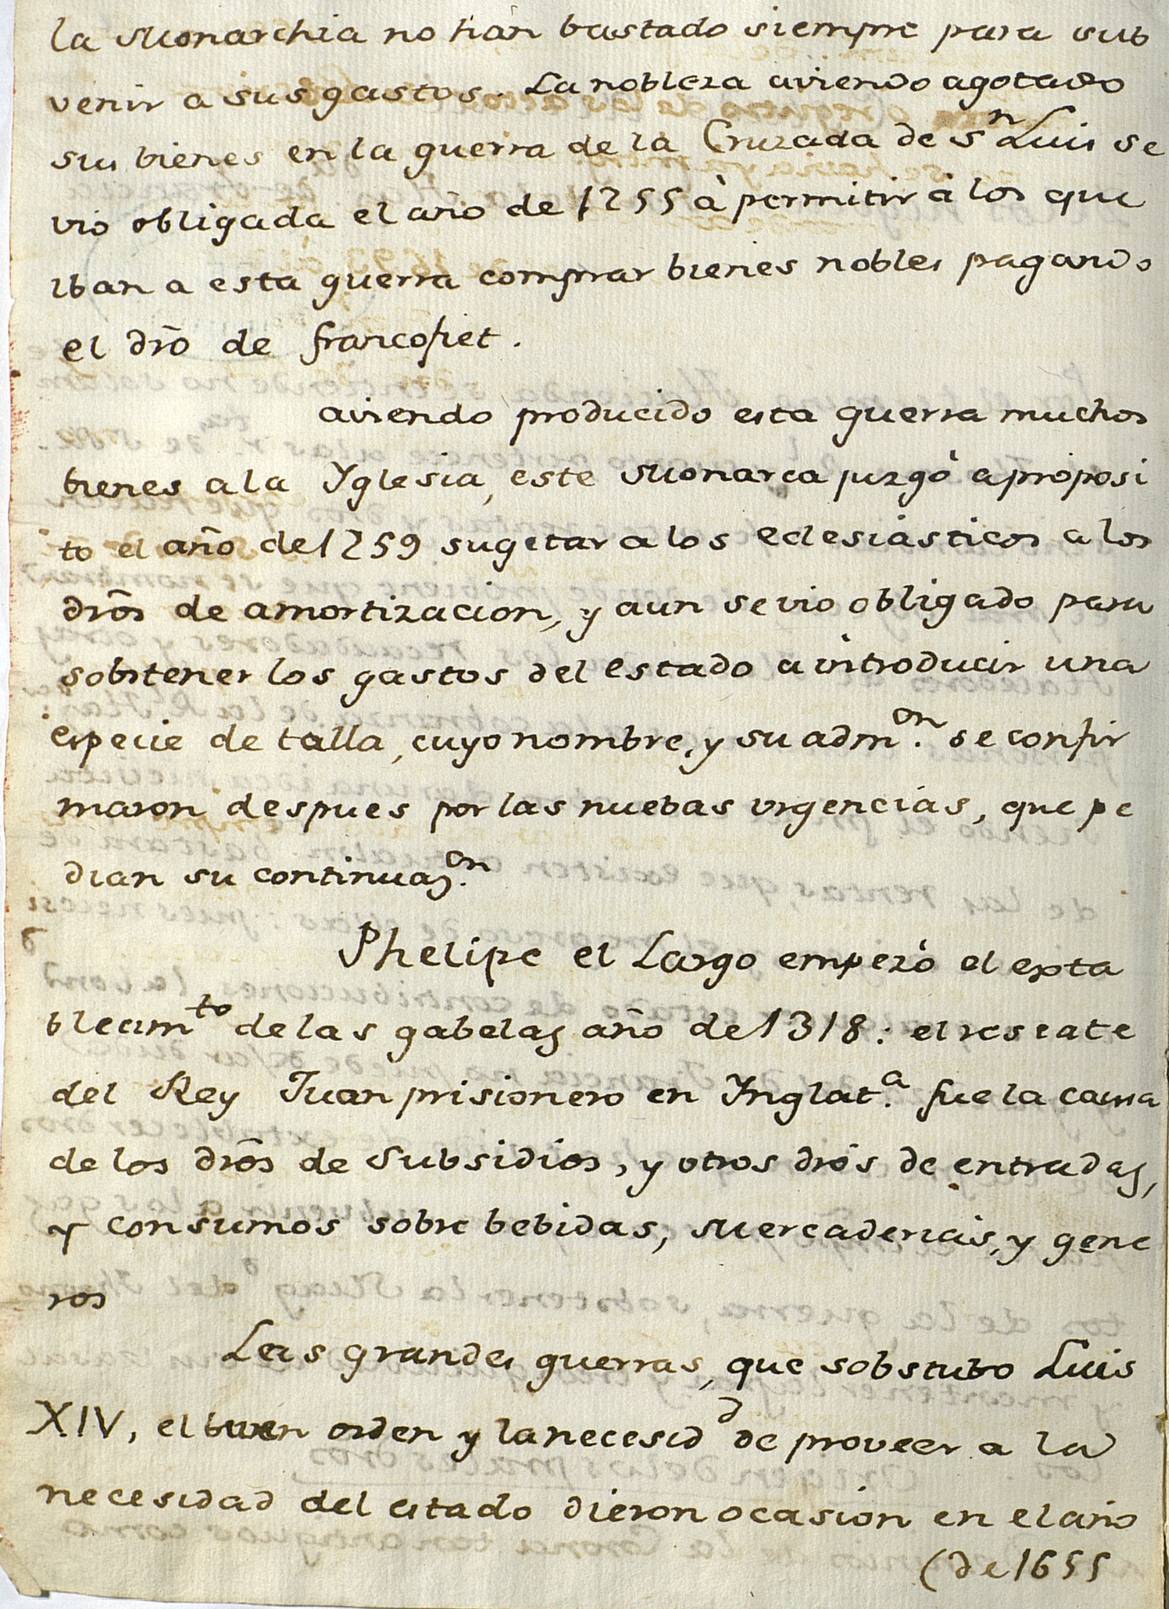 la Monarchia no han bastado siempre para sub
venir a sus gastos. La nobleza aviendo agotado
sus bienes en la guerra de la Cruzada de Sn Luis se
vio obligada el año de 1255 à permitir à los que
iban a esta guerra comprar bienes nobles pagando
el dro de francofiet.
aviendo producido esta guerra muchos
bienes a la Yglesia, este Monarca juzgó a proposi
to el año de 1259 sugetar a los eclesiásticos a los
dros de amortizacion, y aun se vio obligado para
sobstener los gastos del estado a introducir una
especie de talla, cuyo nombre, y su admon. se confir
maron despues por las nuebas urgencias, que pe
dian su continuazon.
Phelipe el Largo empezó el exta
blecimto de las gabelas año de 1318: el rescate
del Rey Juan prisionero en Ynglata. fue la causa
de los dros de subsidios, y otros dros de entradas,
y consumos sobre bebidas, Mercaderias, y gene
ros
Las grandes guerras, que sobstubo Luis
XIV, el buen orden y la necesidd de proveer a la
necesidad del estado dieron ocasion en el año
(de 1655